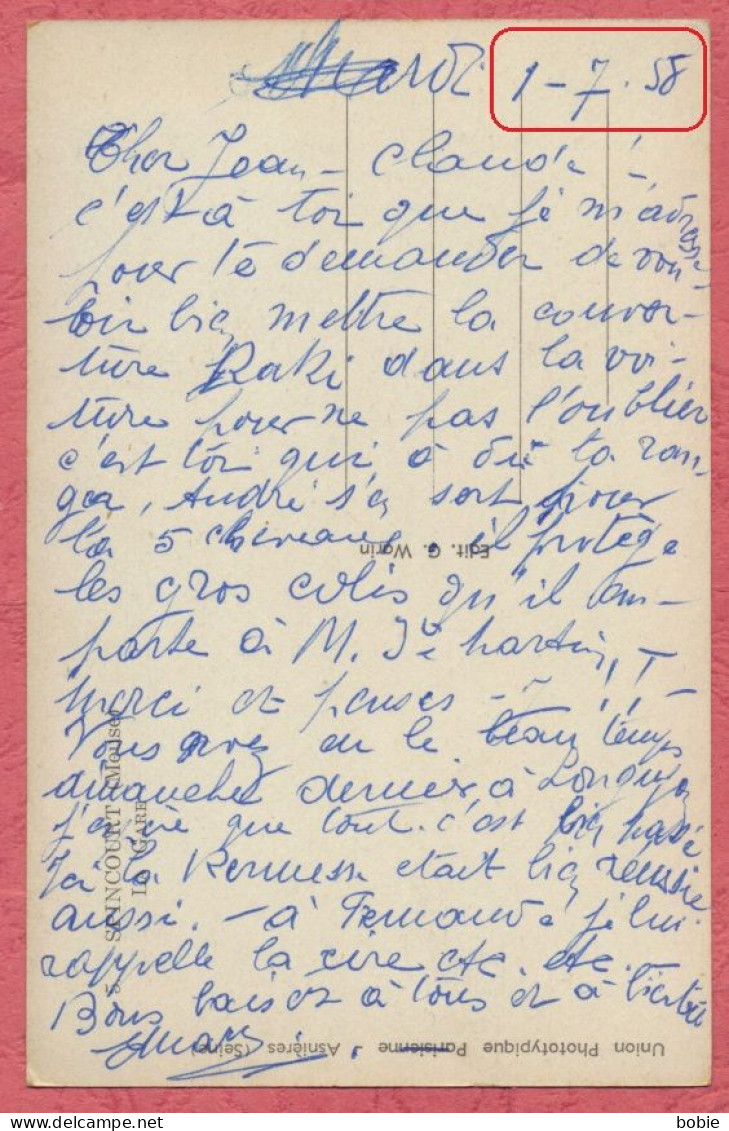 Mardi 1-7.58
Cher Jean-Claude !
c'est à toi que je m'adresse
pour te demander de vou-
loir bien mettre la couver-
ture Raki dans la voi-
ture pour ne pas l'oublier
c'est toi qui a dû la ran-
ger, André s'en sert pour
la 5 chevaux, il protège
les gros colis qu'il em-
porte à M. Martin,
merci et penses-y !!!
Vous avez eu le beau temps
dimanche dernier à Longuyon
j'espère que tout c'est bien passé
Ici la Kermesse était bien réussie
aussi. - à Fernande je lui
rappelle la cire etc. etc.
Bons baisers à tous et à bientôt
Edit. G. Warin
5. SPINCOURT (Meuse)
LA GARE
Union Phototypique Parisienne - Asnières (Seine)
bobie